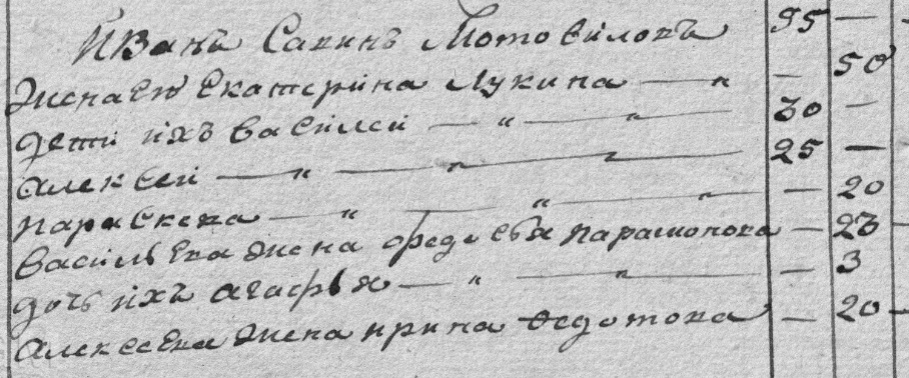 Иванъ Савинъ Мотовиловъ 55 —
Жена Ево Екатерина Лукина — „ — 50
дети ихъ василей — „ — „ 30 —
алексей — „ — „ — „ 25 —
параскева — „ — „ — „ — 20
василье ва жена федосья парамонова — 23
дочь ихъ агафья — „ — „ — 3
алексеева жена ирина Федотова — 20 —